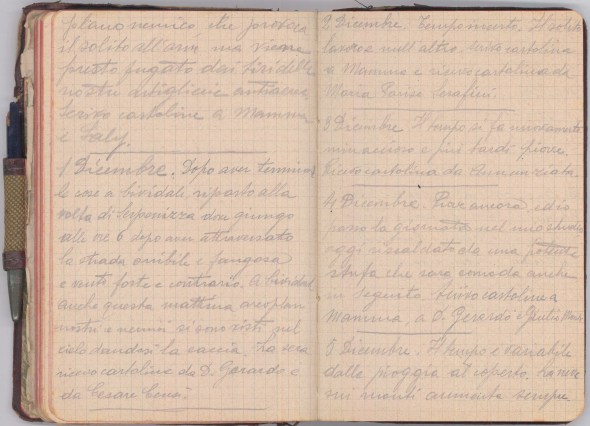 plano nemico, che provoca
il solito all'armi ma viene
presto fugato dai tiri delle
nostre artiglierie antiaeree.
Scrivo cartoline a Mamma
e Saly.
1 Dicembre. Dopo aver terminato
le cose a Cividale, riparto alla
volta di dove giungo
alle ore 6 dopo aver attraversato
la strada orribile e fangosa
e venti forte e contrario. A Cividale
anche questa mattina areoplani
nostri e nemici si sono visti nel
cielo dandosi la caccia. La sera
ricevo cartoline da D. Gerardo e
da Cesare
2 Dicembre. Tempo incerto. Il solito
lavoro e null'altro. Scrivo cartolina
a Mamma e ricevo cartolina da
Maria Serafini.
3 Dicembre. Il tempo si fa nuovamente
minaccioso e più tardi piove.
Ricevo cartolina da Annunziata
4 Dicembre. Piove ancora, ed io
passo la giornata nel mio
oggi riscaldato da una potente
stufa che sarà comoda anche
in seguito. Scrivo cartoline a
Mamma, a D. Gerardo e
5 Dicembre. Il tempo è variabile
dalla pioggia al coperto. La neve
sui monti aumenta sempre.